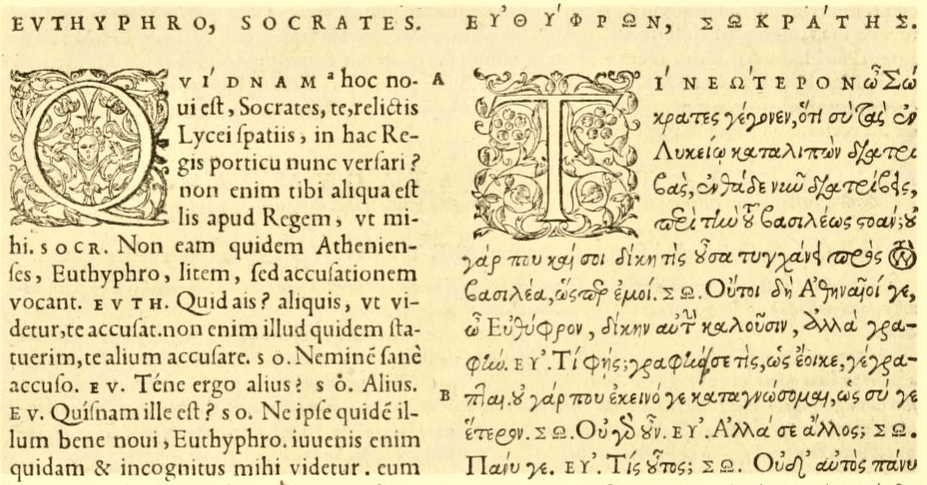 EVTHYPHRO, SOCRATES.
QVIDNAM ᵃ hoc no-
ui eſt, Socrates, te, relictis
Lycei ſpatiis, in hac Re-
gis porticu nunc verſari?
non enim tibi aliqua eſt
lis apud Regem, vt mi-
hi. SOCR. Non eam quidem Athenien-
ſes, Euthyphro, litem, ſed accuſationem
vocant. EVTH. Quid ais? aliquis, vt vi-
detur, te accuſat. non enim illud quidem ſta-
tuerim, te alium accuſare. SO. Neminē ſanè
accuſo. EV. Téne ergo alius? SO. Alius.
EV. Quiſnam ille eſt? SO. Ne ipſe quidē il-
lum bene noui, Euthyphro. iuuenis enim
quidam & incognitus mihi videtur. eum
ΕΥ᾿ΘΥ´ΦΡΩΝ, ΣΩΚΡΑ´ΤΗΣ.
A
ΤΙ´ ΝΕΩ´ΤΕΡΟΝ ὦ Σώ
κρατες γέγονεν, ὅτι σὺ τὰς ἐν
Λυκείῳ καταλιπὼν διατρι
βὰς, ἐνθάδε νῦν διατρίβεις,
περὶ τὴν τοῦ βασιλέως στοάν; οὐ
γάρ που καί σοι δίκη τὶς οὖσα τυγχάνει πρὸς τὸν
βασιλέα, ὥσπερ ἐμοί. ΣΩ. Οὔτοι δὴ Ἀθηναῖοί γε,
ὦ Εὐθύφρον, δίκην αὐτὴν καλοῦσιν, ἀλλὰ γρα-
φήν. ΕΥ᾿. Τί φῄς; γραφήν σε τὶς, ὡς ἔοικε, γέγρα-
B
πται. οὐ γάρ που ἐκεῖνό γε καταγνώσομαι, ὡς σύ γε
ἕτερον. ΣΩ. Οὐ γὰρ οὖν. ΕΥ᾿. Ἀλλά σε ἄλλος; ΣΩ.
Πάνυ γε. ΕΥ᾿. Τίς οὗτος; ΣΩ. Οὐδ᾿ αὐτὸς πάνυ